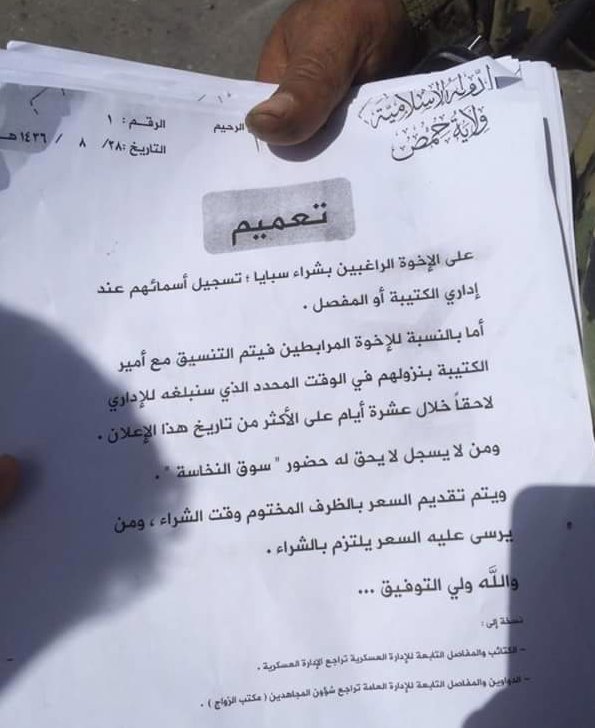 الدولة الإسلامية
ولاية حمص
الرحيم
الرقم: ١
التاريخ: ٢٨/ ٨ / ١٤٣٦ هـ
تعميم
على الإخوة الراغبين بشراء سبايا ؛ تسجيل أسمائهم عند
إداري الكتيبة أو المفصل .
أما بالنسبة للإخوة المرابطين فيتم التنسيق مع أمير
الكتيبة بنزولهم في الوقت المحدد الذي سنبلغه للإداري
لاحقاً خلال عشرة أيام على الأكثر من تاريخ هذا الإعلان .
ومن لا يسجل لا يحق له حضور " سوق النخاسة " .
ويتم تقديم السعر بالظرف المختوم وقت الشراء ، ومن
يرسى عليه السعر يلتزم بالشراء .
والله ولي التوفيق ...
نسخة إلى :
- الكتائب والمفاصل التابعة للإدارة العسكرية تراجع الإدارة العسكرية .
- الدواوين والمفاصل التابعة للإدارة العامة تراجع شؤون المجاهدين ( مكتب الزواج ) .